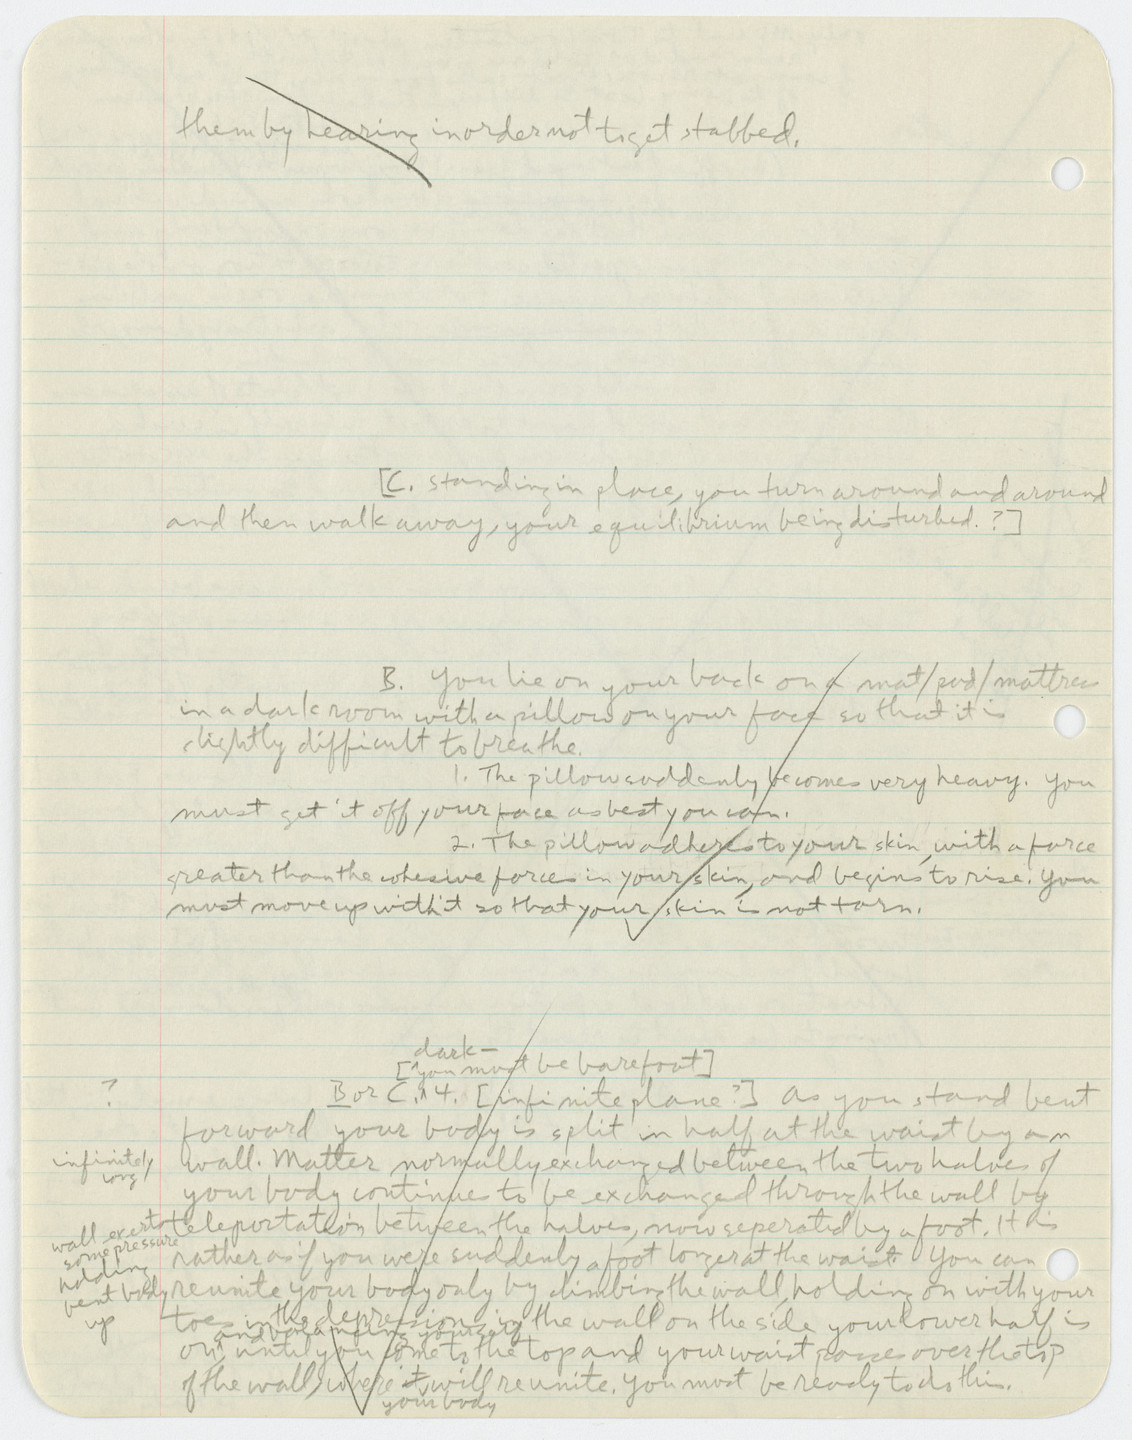 them by hearing in order not to get stabbed.
[C. Standing in place, you turn around and around
and then walk away, your equilibrium being disturbed. ?]
B. You lie on your back on a mat/pad/mattress
in a dark room with a pillow on your face so that it is
slightly difficult to breathe.
1. The pillow suddenly becomes very heavy. You
must get it off your face as best you can.
2. The pillow adheres to your skin, with a force
greater than the cohesive forces in your skin, and begins to rise. You
must move up with it so that your skin is not torn.
dark—
[you must be barefoot]
?
B or C. 4. [infinite plane?] As you stand bent
forward your body is split in half at the waist by an
infinitely
long
wall. Matter normally exchanged between the two halves of
your body continues to be exchanged through the wall by
teleportation between the halves, now seperated by a foot. It is
wall exerts
some pressure
holding
bent body
up
rather as if you were suddenly a foot longer at the waist. You can
reunite your body only by climbing the wall, holding on with your
toes in the depressions in the wall on the side your lower half is
and balancing yourself
on, until you come to the top and your waist passes over the top
of the wall, where it will reunite. You must be ready to do this.
your body